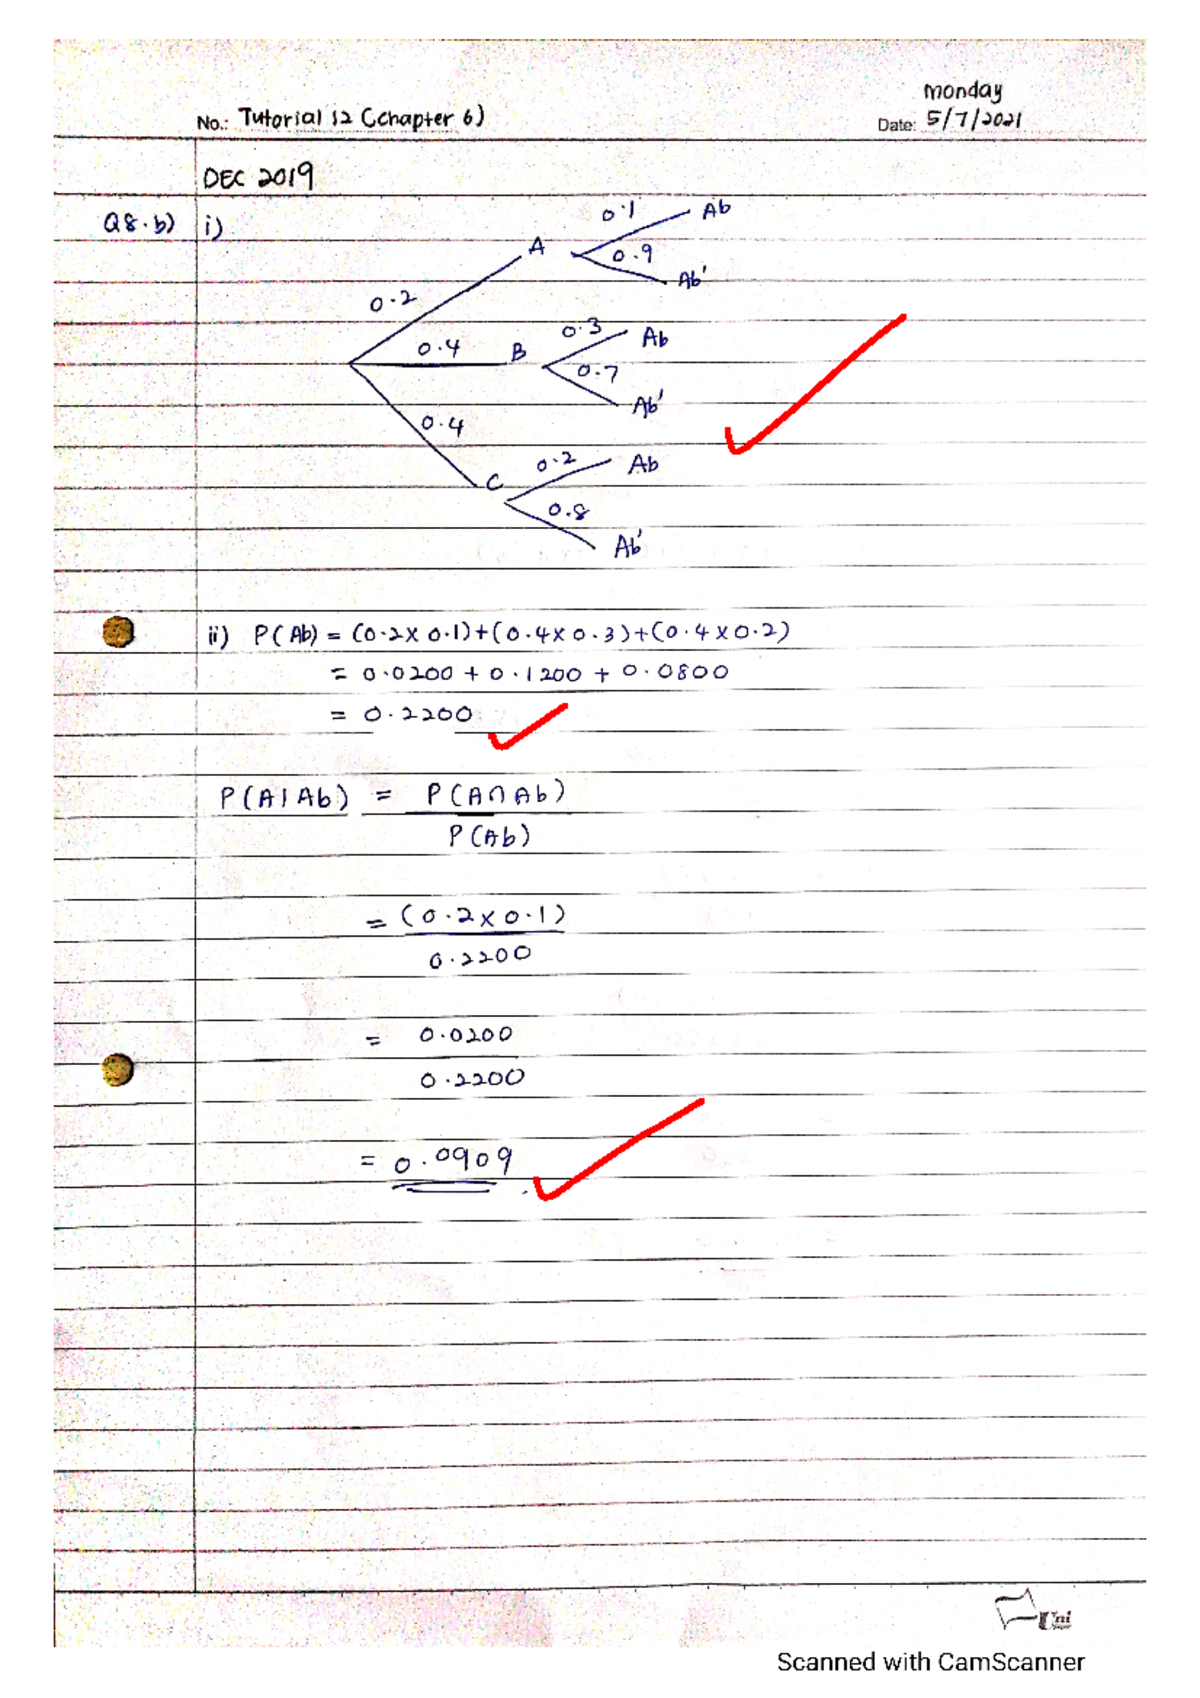 monday
No.: Tutorial 12 (chapter 6)
Date: 5/7/2021
DEC 2019
Q8.b) i)
0.1 Ab
A
0.9
Ab'
0.2
0.3 Ab
0.4 B
0.7
Ab'
0.4
0.2 Ab
C
0.8
Ab'
ii) P(Ab) = (0.2 x 0.1)+(0.4 x 0.3)+(0.4 x 0.2)
= 0.0200 + 0.1200 + 0.0800
= 0.2200
P(A|Ab) = P(A∩Ab)
P(Ab)
= (0.2 x 0.1)
0.2200
= 0.0200
0.2200
= 0.0909
Uni
Scanned with CamScanner